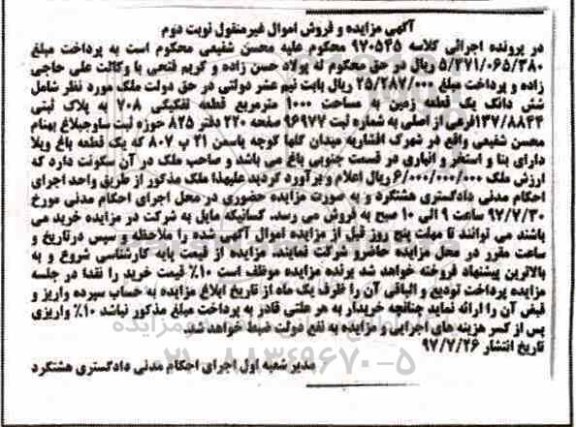 آگهی مزایده و فروش اموال غیرمنقول نوبت دوم
در پرونده اجرائی کلاسه ۹۷۰۵۴۵ محکوم علیه محسن شفیعی محکوم است به پرداخت مبلغ
۵/۲۷۱/۰۶۵/۳۸۰ ریال در حق محکوم له پولاد حسن زاده و کریم فتحی با وکالت علی حاجی
زاده و پرداخت مبلغ ۲۵/۲۸۷/۰۰۰ ریال بابت نیم عشر دولتی در حق دولت ملک مورد نظر شامل
شش دانگ یک قطعه زمین به مساحت ۱۰۰۰ مترمربع قطعه تفکیکی ۷۰۸ به پلاک ثبتی
۱۳۷/۸۸۴۴فرعی از اصلی به شماره ثبت ۹۶۹۷۷ صفحه ۲۲۰ دفتر ۸۲۵ حوزه ثبت ساوجبلاغ بهنام
محسن شفیعی واقع در شهرک افشاریه میدان گلها کوچه یاسمن ۲۱ پ ۸۰۷ که یک قطعه باغ ویلا
دارای بنا و استخر و انباری در قسمت جنوبی باغ می باشد و صاحب ملک در آن سکونت دارد که
ارزش ملک ۶/۰۰۰/۰۰۰/۰۰۰ ریال اعلام و برآورد گردید علیهذا ملک مذکور از طریق واحد اجرای
احکام مدنی دادگستری هشتگرد و به صورت مزایده حضوری در محل اجرای احکام مدنی مورخ
۹۷/۷/۳۰ ساعت ۹ الی ۱۰ صبح به فروش می رسد. کسانیکه مایل به شرکت در مزایده خرید می
باشند می توانند تا مهلت پنج روز قبل از مزایده اموال آگهی شده را ملاحظه و سپس درتاریخ و
ساعت مقرر در محل مزایده حاضرو شرکت نمایند. مزایده از قیمت پایه کارشناسی شروع و به
بالاترین پیشنهاد فروخته خواهد شد برنده مزایده موظف است ۱۰٪ قیمت خرید را نقدا در جلسه
مزایده پرداخت تودیع و الباقی آن را ظرف یک ماه از تاریخ ابلاغ مزایده به حساب سپرده واریز و
قبض آن را ارائه نماید چنانچه خریدار به هر علتی قادر به پرداخت مبلغ مذکور نباشد ۱۰٪ واریزی
پس از کسر هزینه های اجرایی و مزایده به نفع دولت ضبط خواهد شد.
تاریخ انتشار ۹۷/۷/۲۶
۰۲۱-۸۸۳۴۹۶۷۰-۵
مدیر شعبه اول اجرای احکام مدنی دادگستری هشتگرد